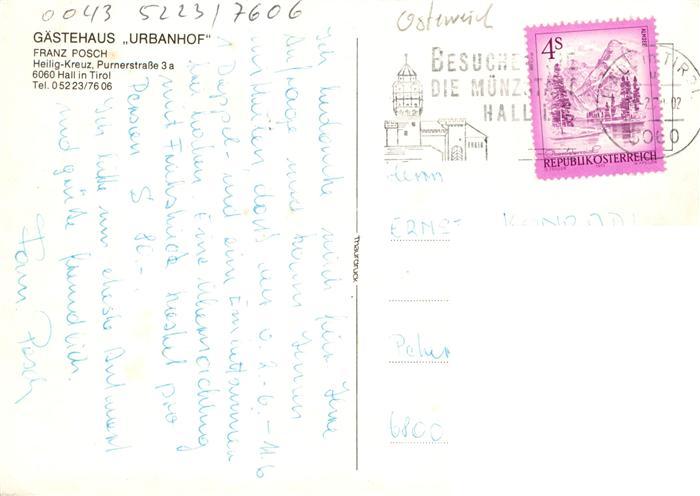 0043 5223/7606
GÄSTEHAUS „URBANHOF"
FRANZ POSCH
Heilig-Kreuz, Purnerstraße 3 a
6060 Hall in Tirol
Tel. 0 52 23/76 06
Ich bedanke mich für Ihre
Anfrage und kann Ihnen
mitteilen, daß von 2.6.-11.6
1 Doppel- und ein Einbettzimmer
frei haben. Eine Übernachtung
mit Frühstück kostet pro
Person S 80.-
Ich bitte um eheste Antwort
und grüße freundlich.
Fam. Posch
Thaurdruck
Österreich
BESUCHEN
DIE MÜNZSTA
HALL
4S
ALMSEE
REPUBLIK ÖSTERREICH
TIR
6060
Herrn
ERNST
6800